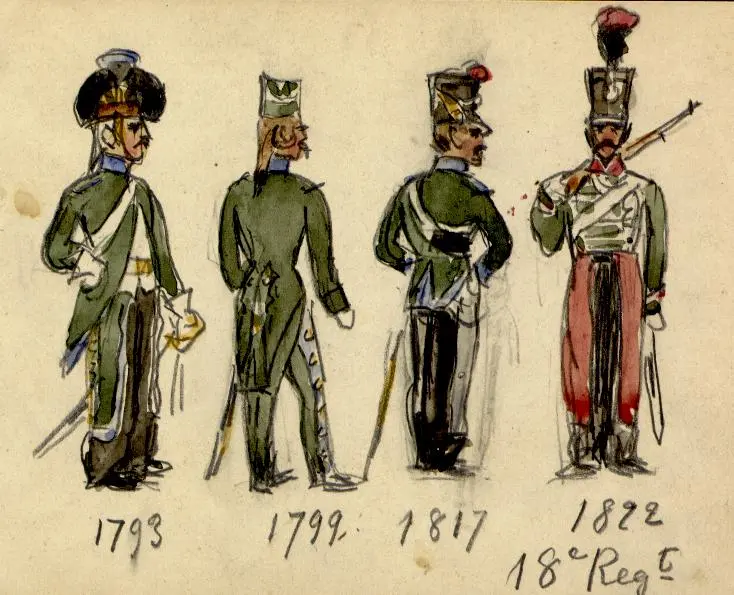 1793 1799. 1817 1822
18e Regt